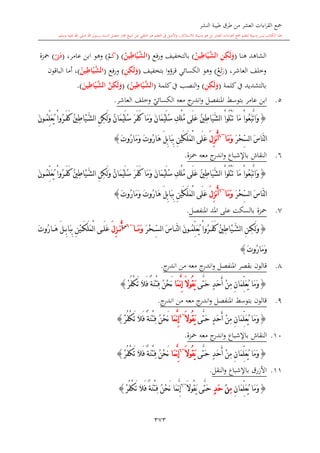 جمع القراءات العشر من طرق طيبة النشر
الشاهد هنا (وَلَٰكِنَّ الشَّيَاطِينَ) بالتخفيف ورفع (الشَّيَاطِينُ) (كَمْ) وهو ابن عامر، (رُدَّ) حمزة
وخلف العاشر، وهو الكسائي قرؤوا بتخفيف (وَلَٰكِنِ) ورفع (الشَّيَاطِينُ)، أما الباقون
بالتشديد في كلمة (وَلَٰكِنَّ) والنصب في كلمة (الشَّيَاطِينَ) (وَلَٰكِنَّ الشَّيَاطِينَ).
٥. ابن عامر بتوسط المنفصل واندرج معه الكسائي وخلف العاشر.
﴿ وَاتَّبَعُوا مَا تَتْلُو الشَّيَاطِينُ عَلَىٰ مُلْكِ سُلَيْمَانَ وَمَا كَفَرَ سُلَيْمَانُ وَلَٰكِنِ الشَّيَاطِينُ كَفَرُوا يُعَلِّمُونَ
النَّاسَ السِّحْرَ وَمَا أُنْزِلَ عَلَى الْمَلَكَيْنِ بِبَابِلَ هَارُوتَ وَمَارُوتَ ﴾
٦. النقاش بالإشباع واندرج معه حمزة.
﴿ وَاتَّبَعُوا مَا تَتْلُو الشَّيَاطِينُ عَلَىٰ مُلْكِ سُلَيْمَانَ وَمَا كَفَرَ سُلَيْمَانُ وَلَٰكِنِ الشَّيَاطِينُ كَفَرُوا يُعَلِّمُونَ
النَّاسَ السِّحْرَ وَمَا أُنْزِلَ عَلَى الْمَلَكَيْنِ بِبَابِلَ هَارُوتَ وَمَارُوتَ ﴾
٧. حمزة بالسكت على المد المنفصل.
﴿ وَلَٰكِنِ الشَّيَاطِينُ كَفَرُوا يُعَلِّمُونَ النَّاسَ السِّحْرَ وَمَا أُنْزِلَ عَلَى الْمَلَكَيْنِ بِبَابِلَ هَارُوتَ
وَمَارُوتَ ﴾
٨. قالون بقصر المنفصل واندرج معه من اندرج.
﴿ وَمَا يُعَلِّمَانِ مِنْ أَحَدٍ حَتَّىٰ يَقُولَا إِنَّمَا نَحْنُ فِتْنَةٌ فَلَا تَكْفُرْ ﴾
٩. قالون بتوسط المنفصل واندرج معه من اندرج.
﴿ وَمَا يُعَلِّمَانِ مِنْ أَحَدٍ حَتَّىٰ يَقُولَا إِنَّمَا نَحْنُ فِتْنَةٌ فَلَا تَكْفُرْ ﴾
١٠. النقاش بالإشباع واندرج معه حمزة.
﴿ وَمَا يُعَلِّمَانِ مِنْ أَحَدٍ حَتَّىٰ يَقُولَا إِنَّمَا نَحْنُ فِتْنَةٌ فَلَا تَكْفُرْ ﴾
١١. الأزرق بالإشباع والنقل.
﴿ وَمَا يُعَلِّمَانِ مِنْ أَحَدٍ حَتَّىٰ يَقُولَا إِنَّمَا نَحْنُ فِتْنَةٌ فَلَا تَكْفُرْ ﴾
٣٧٣